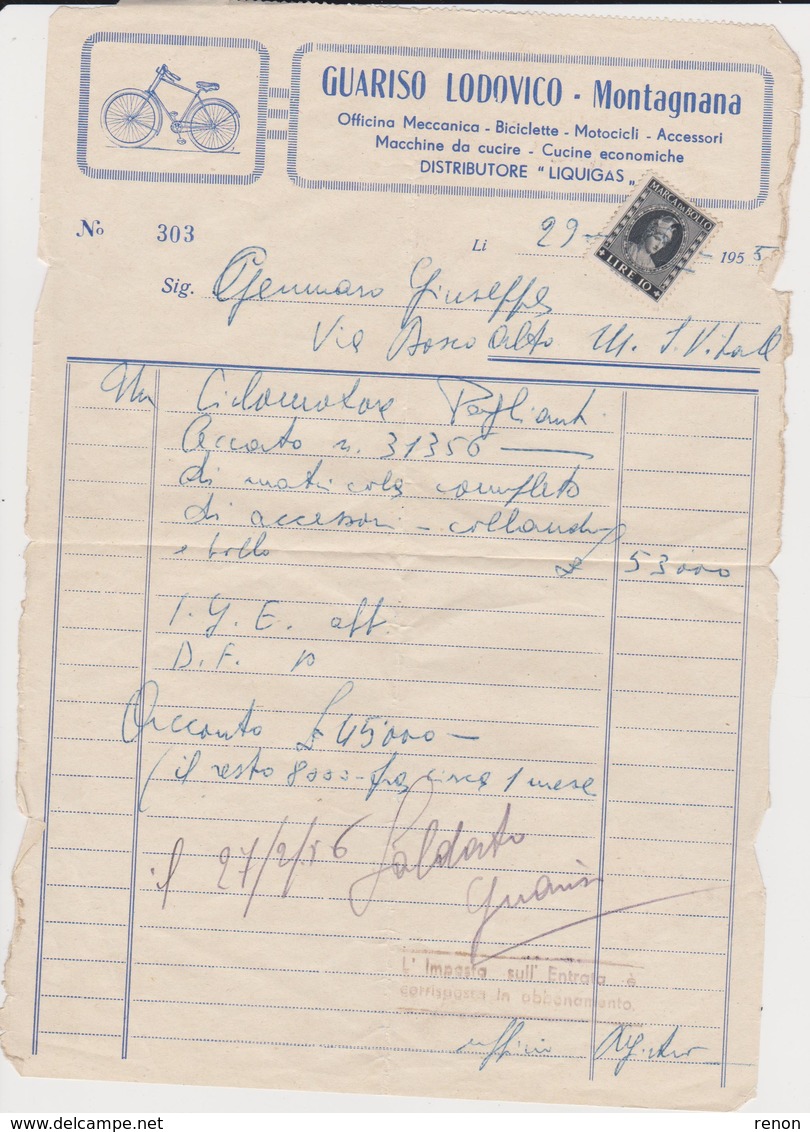 GUARISO LODOVICO - Montagnana
Officina Meccanica - Biciclette - Motocicli - Accessori
Macchine da cucire - Cucine economiche
DISTRIBUTORE "LIQUIGAS"
MARCA DA BOLLO
LIRE 10
No 303
Li 29 1955
Sig. Gennaro Giuseppe
Via Bosco Alto M. S. Vitale
Ciclomotore
n. 31356
di matricola completo
di accessori - collaudo
e bollo £ 53000
I. G. E. aff.
D. F.
Acconto £ 45000 -
(il resto 8000 - fra circa 1 mese
il 27/2/56 Saldato
Guariso
L' Imposta sull' Entrata è
corrisposta in abbonamento.
ufficio Registro
renon